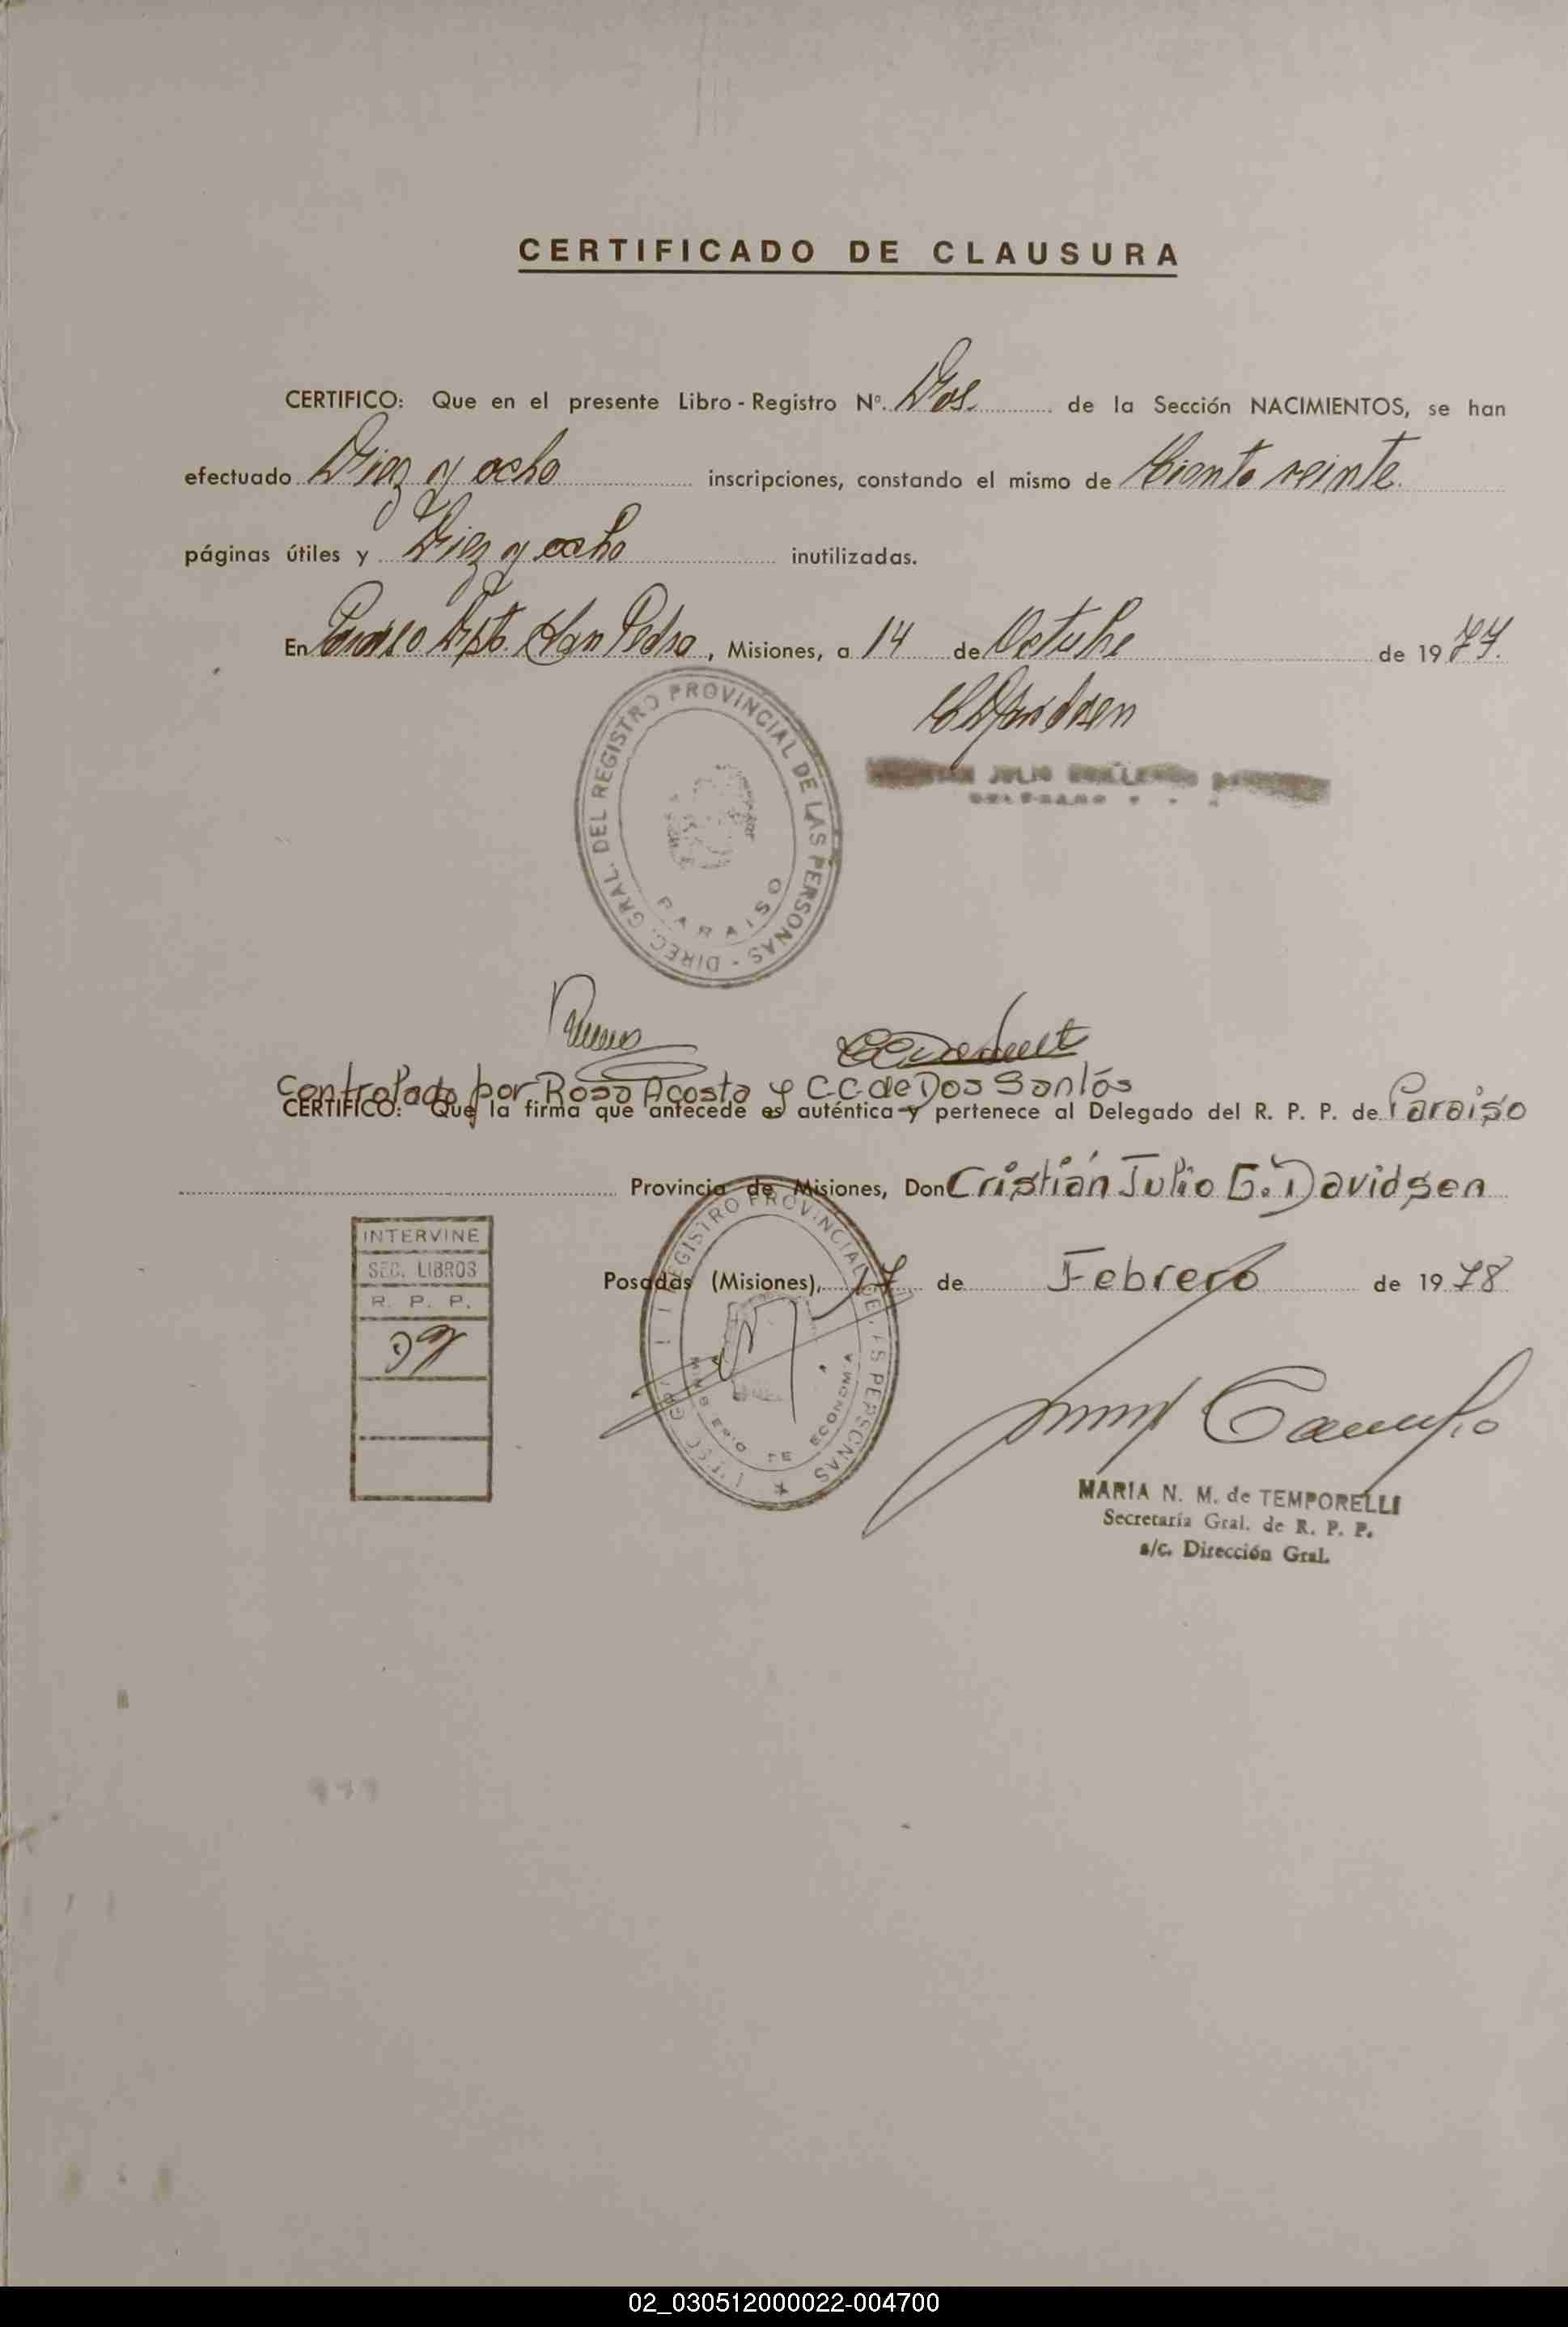 CERTIFICADO DE CLAUSURA
CERTIFICO: Que en el presente Libro - Registro Nº. Dos. de la Sección NACIMIENTOS, se han
efectuado Diez y ocho inscripciones, constando el mismo de Ciento veinte.
páginas útiles y Diez y ocho inutilizadas.
En Paraiso Dpto. San Pedro, Misiones, a 14 de Octubre de 1977.
JULIO
DIREC. GRAL. DEL REGISTRO PROVINCIAL DE LAS PERSONAS -
PARAISO
Controlado por Rosa Acosta y C.C. de Dos Santos
CERTIFICO: Que la firma que antecede es auténtica y pertenece al Delegado del R. P. P. de Paraiso
Provincia de Misiones, Don Cristián Julio G. Davidsen
Posadas (Misiones), 17 de Febrero de 1978
INTERVINE
SEC. LIBROS
R. P. P.
REGISTRO PROVINCIAL DE LAS PERSONAS
MINISTERIO DE ECONOMIA
MARIA N. M. de TEMPORELLI
Secretaría Gral. de R. P. P.
a/c. Dirección Gral.
02_030512000022-004700